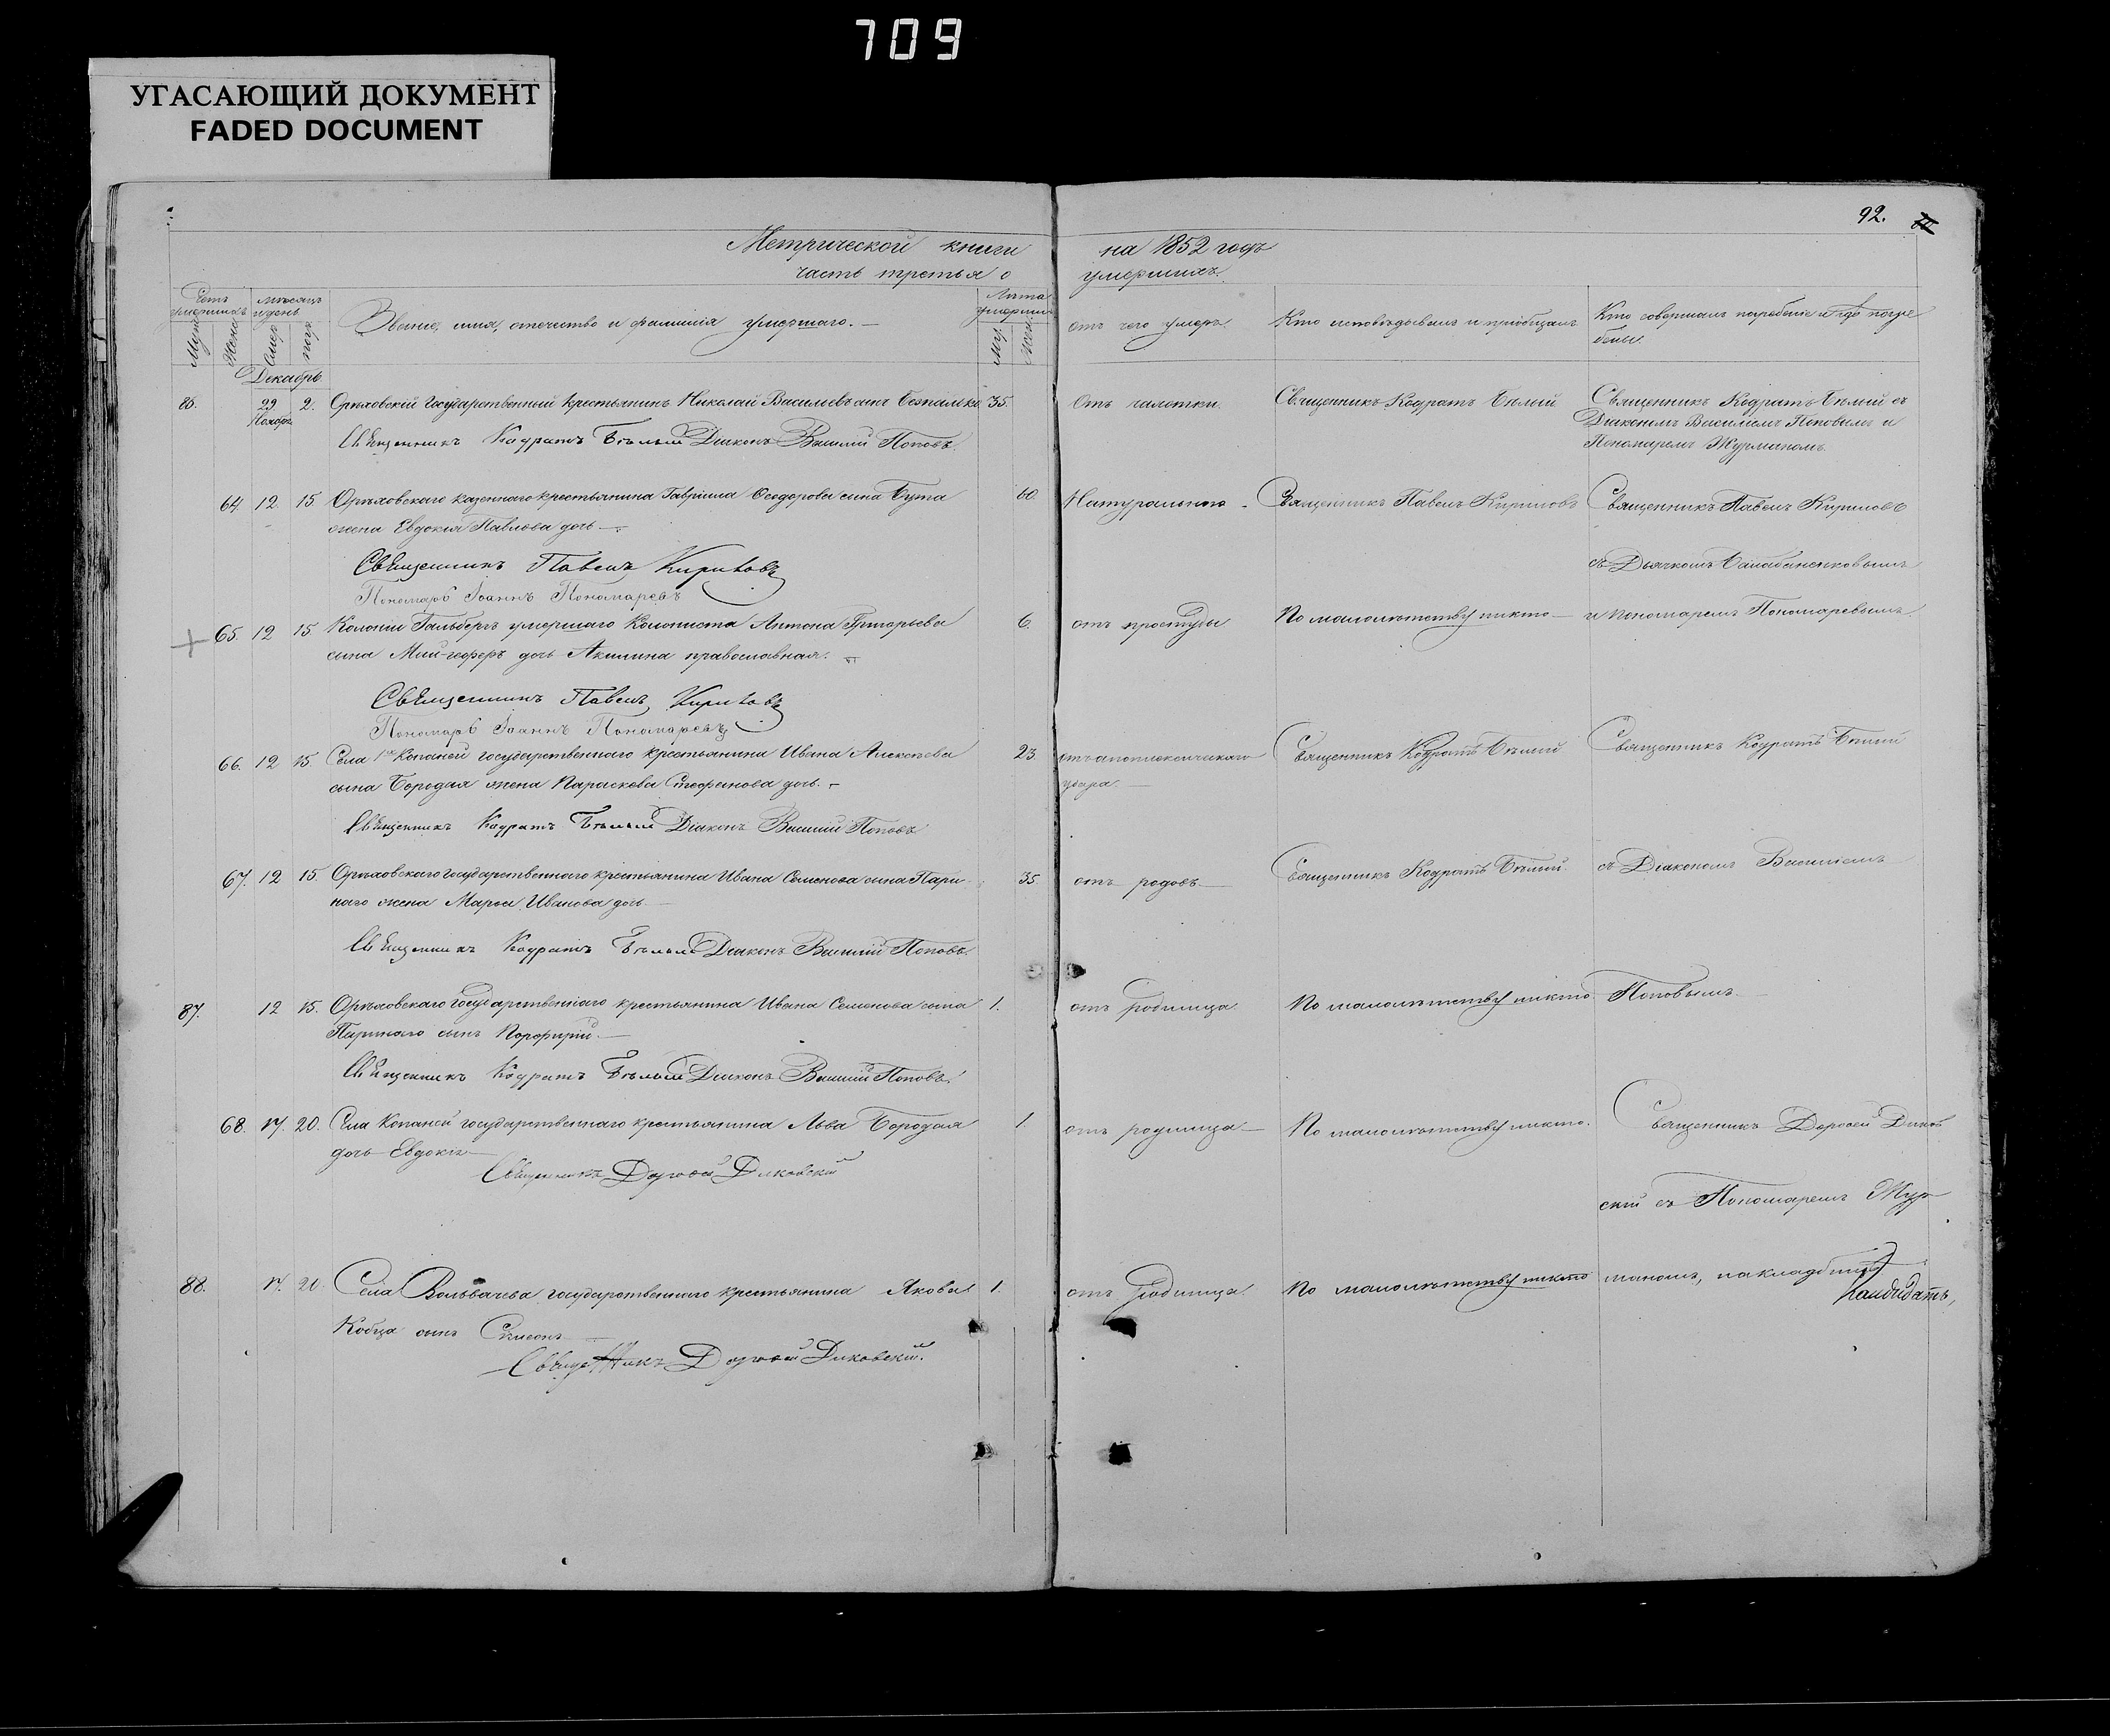 709
УГАСАЮЩИЙ ДОКУМЕНТ
FADED DOCUMENT
92.
Метрической книги на 1852 годъ
часть третья о умершихъ.
Счетъ умершихъ
мѣсяцъ и день
Званіе, имя, отечество и фамилія умершаго.
Лѣта умершихъ
отъ чего умеръ.
Кто исповѣдывалъ и пріобщалъ
Кто совершалъ погребеніе и гдѣ погре
бены.
Муж. Жен. Умер. пог.
Му. Жен.
Декабрь.
86. 29 Ноябр. 2. Орѣховскій Государственный крестьянинъ Николай Васильевъ сынъ Безпалько 35. Отъ чахотки. Священникъ Кодратъ Бѣлый Священникъ Кодратъ Бѣлый съ
Діакономъ Василіемъ Поповымъ и
Пономаремъ Журманомъ.
Священникъ Кодратъ Бѣлый Діаконъ Василий Поповъ.
64 12. 15. Орѣховскаго казеннаго крестьянина Гавріила Ѳеодорова сына Бута 60. Натурально Священникъ Павелъ Кириловъ Священникъ Павелъ Кириловъ
жена Евдокія Павлова дочь
съ Дьячкомъ
Священникъ Павелъ Кириловъ
Пономарь Іоаннъ Пономаревъ
65. 12 15 Колоніи Гальберъ умершаго Колониста Антона Григорьева 6. отъ простуды По малолѣтству никто и пономаремъ Пономаревымъ
сына дочь Акилина православная.
Священникъ Павелъ Кириловъ
Пономарь Іоаннъ Пономаревъ
66. 12 15 Села 1й Копаной государственнаго крестьянина Ивана Алексѣева 23. отъ апоплексическаго Священникъ Кодратъ Бѣлый Священникъ Кодратъ Бѣлый
сына Бородая жена Параскева Стефанова дочь. удара.
Священникъ Кодратъ Бѣлый Діаконъ Василий Поповъ
67. 12 15. Орѣховскаго государственнаго крестьянина Ивана Семенова сына Пари 35. отъ родовъ Священникъ Кодратъ Бѣлый. съ Діакономъ Василіемъ
наго жена Марѳа Иванова дочь
Священникъ Кодратъ Бѣлый Діаконъ Василий Поповъ.
87. 12 15. Орѣховскаго государственнаго крестьянина Ивана Семенова сына 1. отъ родимца По малолѣтству никто Поповымъ.
Паринаго сынъ Порфирій.
Священникъ Кодратъ Бѣлый Діаконъ Василий Поповъ.
68. 17. 20. Села Копаней государственнаго крестьянина Льва Бородая 1. отъ родимца По малолѣтству никто. Священникъ Дороѳей Диков
дочь Евдокія
Священникъ Дороѳей Диковскій
скій съ Пономаремъ Жур
88. 17. 20. Села Вольвачева государственнаго крестьянина Якова 1. отъ родимца По малолѣтству никто маномъ, на кладбищѣ
Кобца сынъ Симеонъ
Священникъ Дороѳей Диковскій.